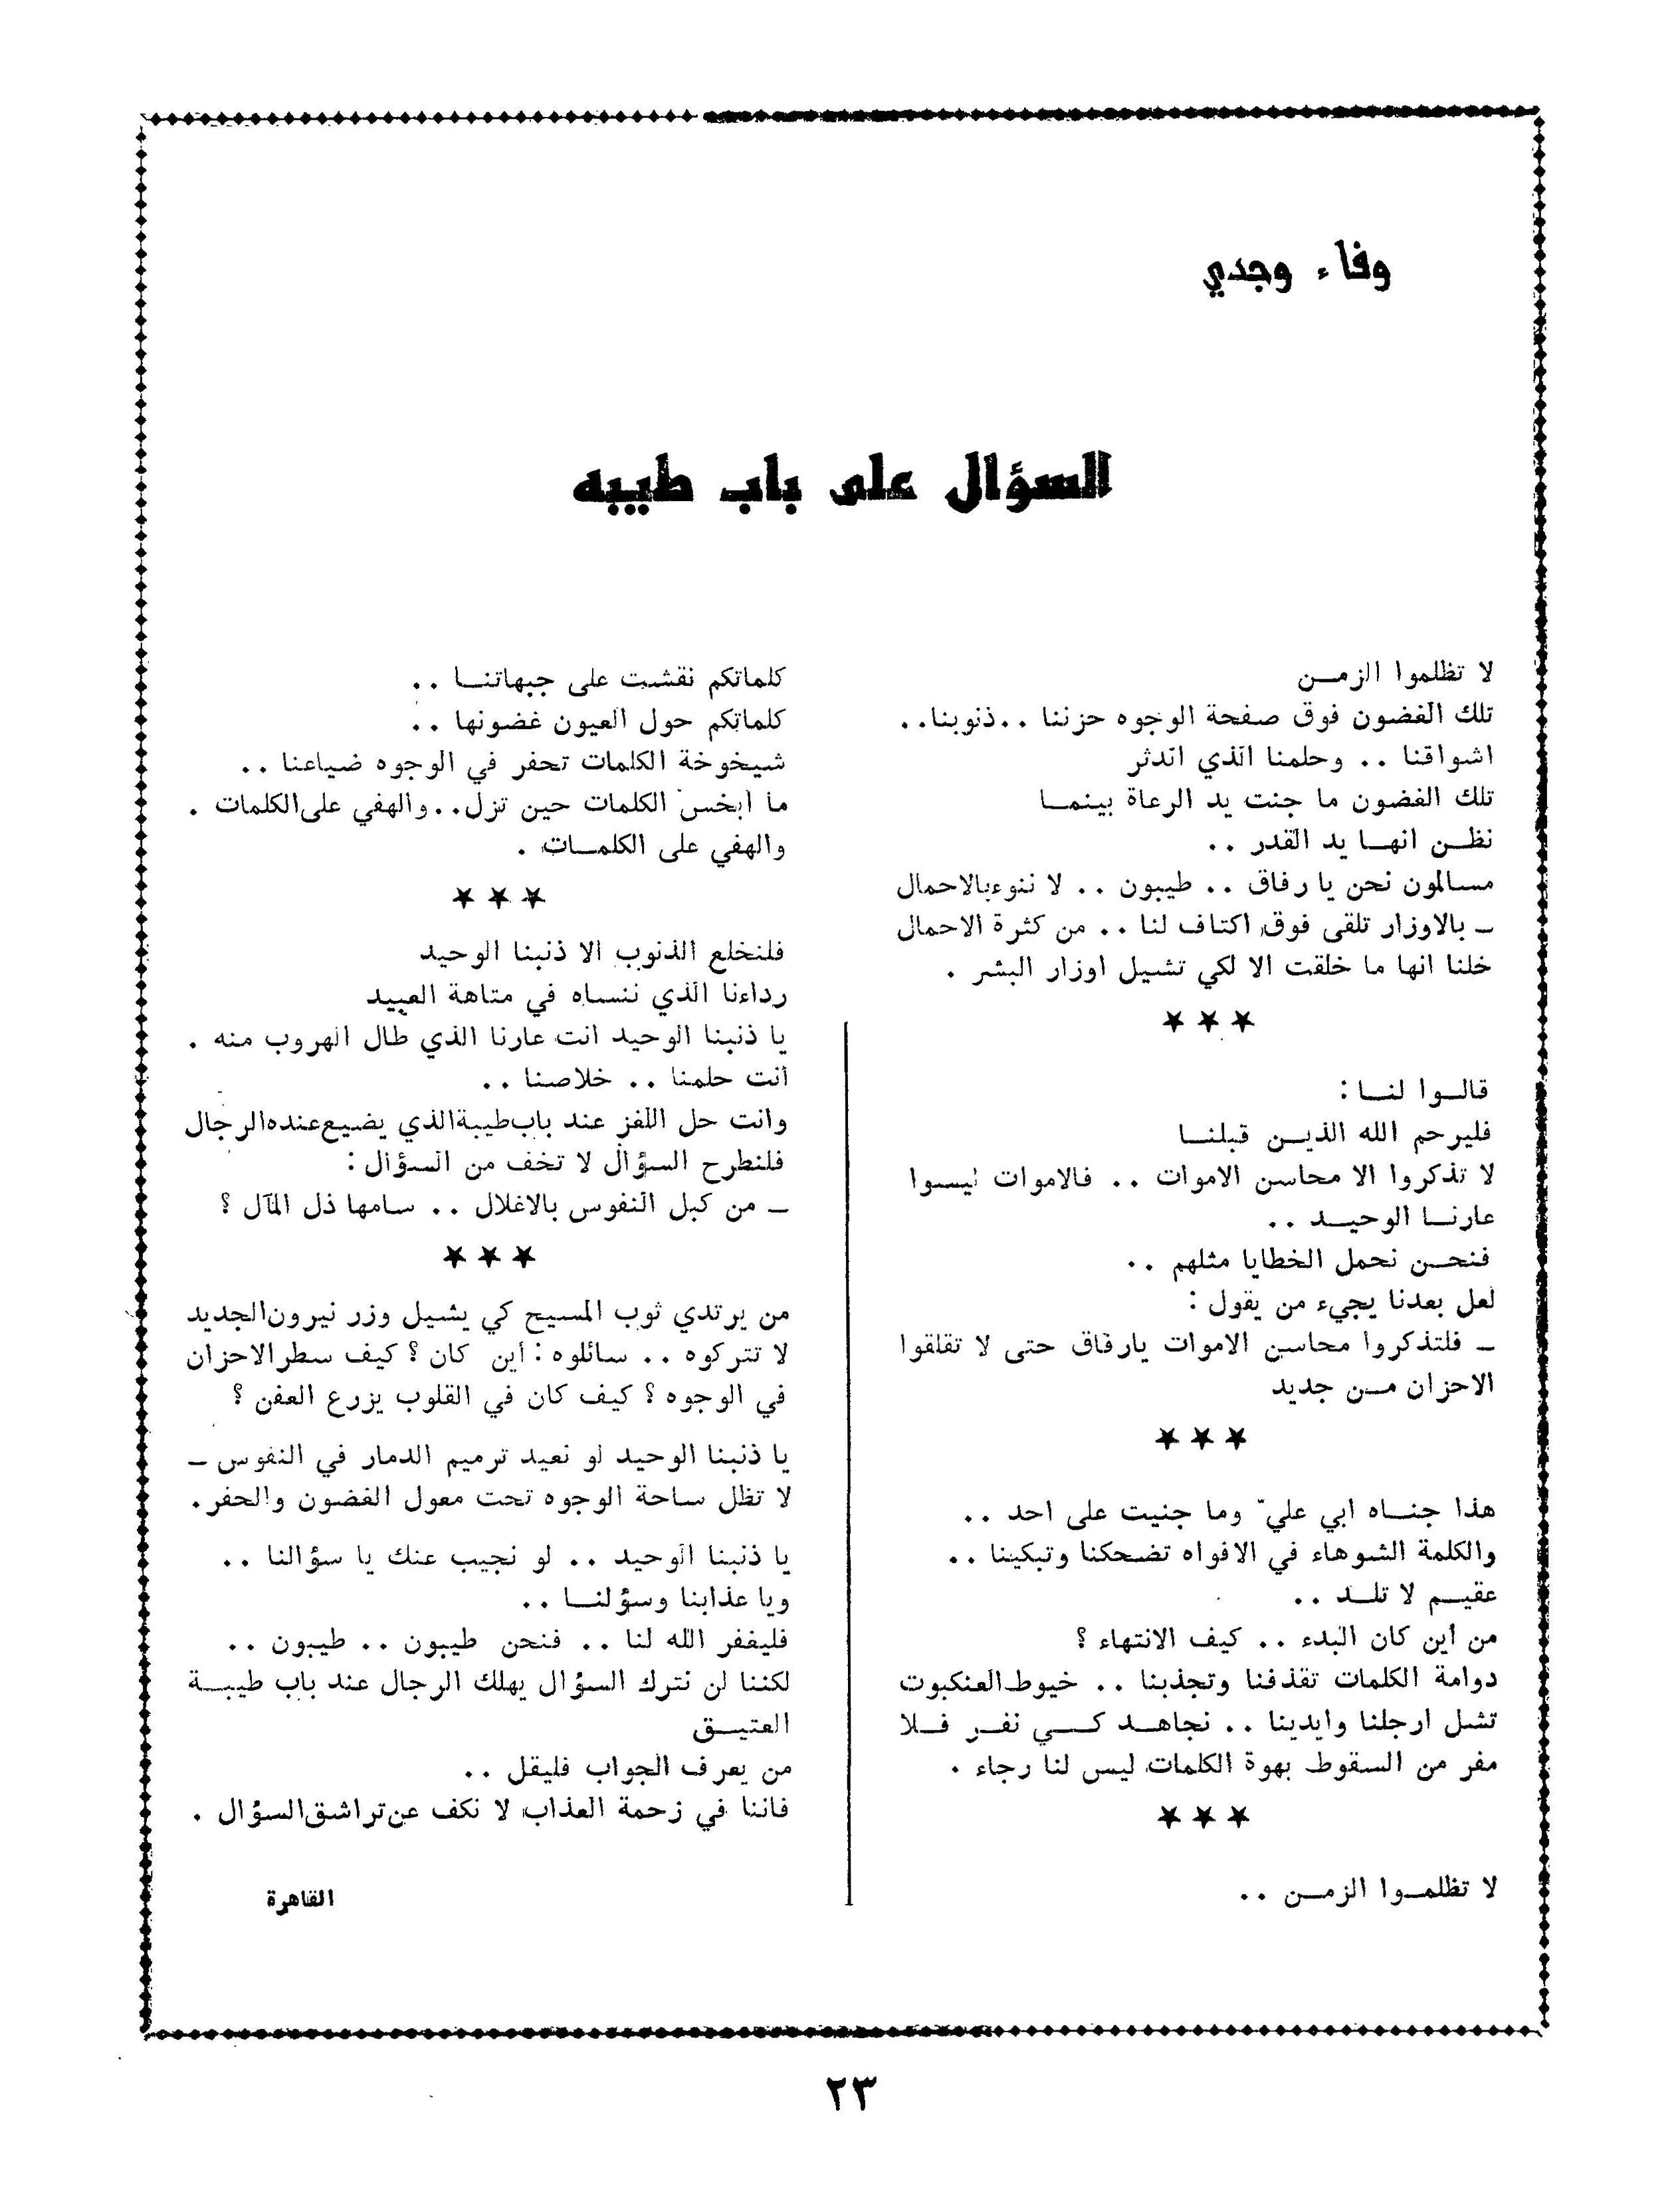 وفاء وجدي
السؤال على باب طيبه
لا تظلموا الزمــن
تلك الغضون فوق صفحة الوجوه حزننا . . ذنوبنا . .
اشواقنا . . وحلمنا الذي اندثر
تلك الغضون ما جنت يد الرعاة بينمــا
نظــن انهــا يد القدر . .
مسالمون نحن يا رفاق . . طيبون . . لا ننوء بالاحمال
ــ بالاوزار تلقى فوق اكتاف لنا . . من كثرة الاحمال
خلنا انها ما خلقت الا لكي تشيل اوزار البشر .
★ ★ ★
قالــوا لنــا :
فليرحم الله الذيــن قبلنــا
لا تذكروا الا محاسن الاموات . . فالاموات ليسوا
عارنــا الوحيــد . .
فنحــن نحمل الخطايا مثلهم . .
لعل بعدنا يجيء من يقول :
ــ فلتذكروا محاسن الاموات يارفاق حتى لا تقلقوا
الاحزان مــن جديد
★ ★ ★
هذا جنــاه ابي عليّ وما جنيت على احد . .
والكلمة الشوهاء في الافواه تضحكنا وتبكينا . .
عقيــم لا تلــد . .
من أين كان البدء . . كيف الانتهاء ؟
دوامة الكلمات تقذفنا وتجذبنا . . خيوط العنكبوت
تشل ارجلنا وايدينا . . نجاهــد كــي نفــر فــلا
مفر من السقوط بهوة الكلمات ليس لنا رجاء .
★ ★ ★
لا تظلمــوا الزمــن . .
كلماتكم نقشت على جبهاتنــا . .
كلماتكم حول العيون غضونها . .
شيخوخة الكلمات تحفر في الوجوه ضياعنا . .
ما أبخس الكلمات حين تزل . . والهفي على الكلمات .
والهفي على الكلمــات .
★ ★ ★
فلنخلع الذنوب الا ذنبنا الوحيد
رداءنا الذي ننساه في متاهة العبيد
يا ذنبنا الوحيد انت عارنا الذي طال الهروب منه .
أنت حلمنا . . خلاصنا . .
وانت حل اللغز عند باب طيبة الذي يضيع عنده الرجال
فلنطرح السؤال لا تخف من السؤال :
ــ من كبل النفوس بالاغلال . . سامها ذل المآل ؟
★ ★ ★
من يرتدي ثوب المسيح كي يشيل وزر نيرون الجديد
لا تتركوه . . سائلوه : أين كان ؟ كيف سطر الاحزان
في الوجوه ؟ كيف كان في القلوب يزرع العفن ؟
يا ذنبنا الوحيد لو نعيد ترميم الدمار في النفوس ــ
لا تظل ساحة الوجوه تحت معول الغضون والحفر .
يا ذنبنا الوحيد . . لو نجيب عنك يا سؤالنا . .
ويا عذابنا وسؤلنــا . .
فليغفر الله لنا . . فنحن طيبون . . طيبون . .
لكننا لن نترك السؤال يهلك الرجال عند باب طيبــة
العتيــق
من يعرف الجواب فليقل . .
فاننا في زحمة العذاب لا نكف عن تراشق السؤال .
القاهرة
٢٣